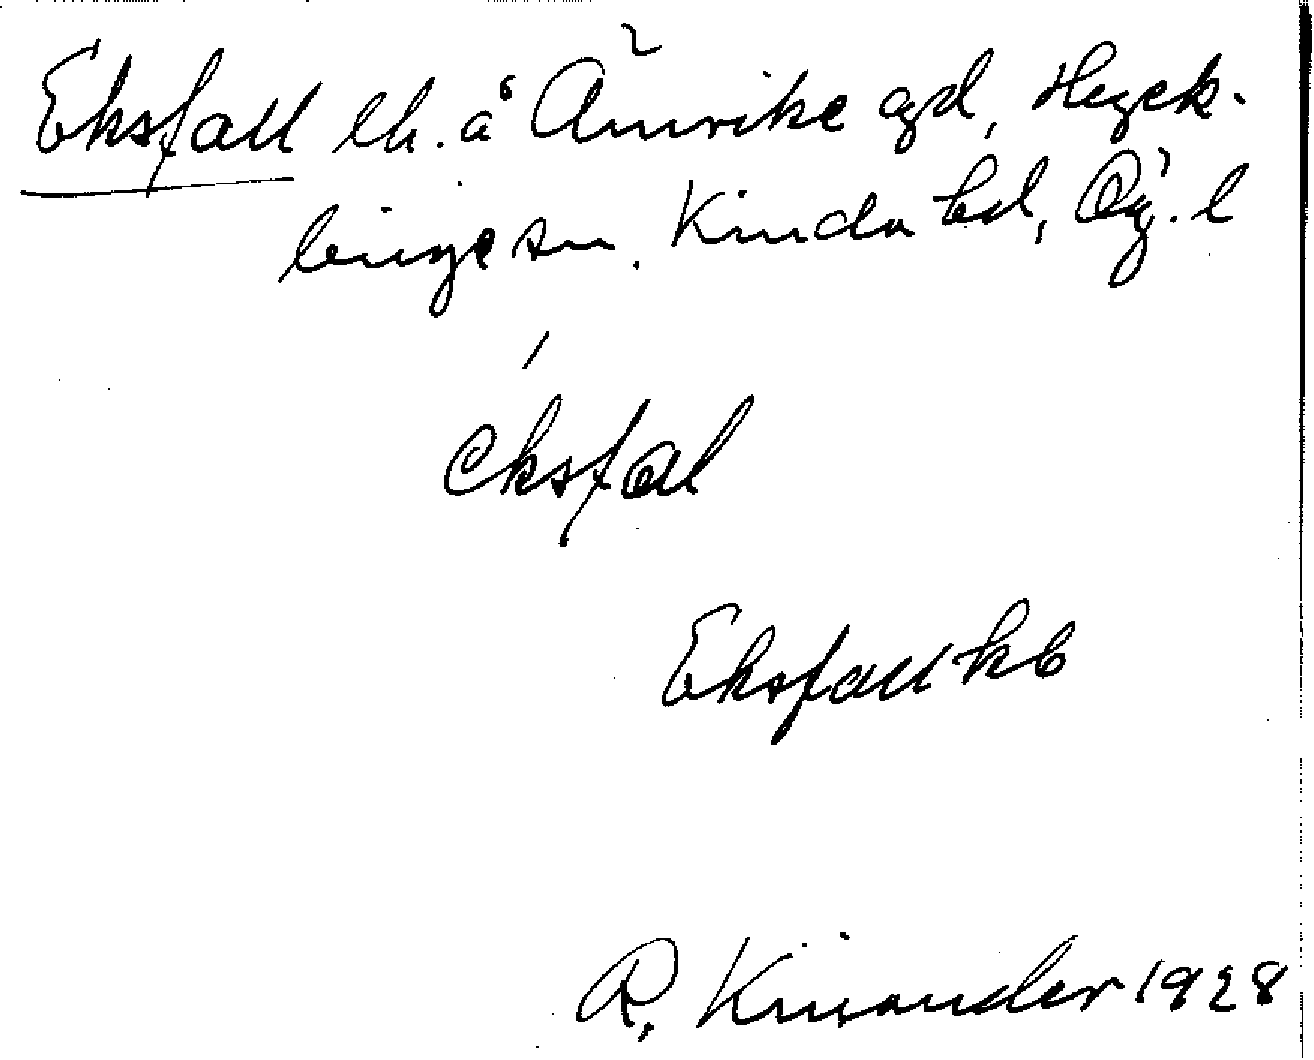 Eksfall lh. å Ämvike egd, Hyck-
linge sn. Kinda hd, Ög. l
eksfal
Eksfall kb
R. Kinander 1928